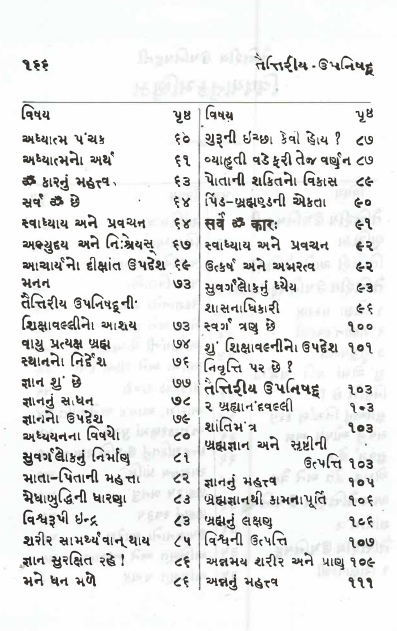 ૧૬૬
તૈત્તિરીય - ઉપનિષદ્
વિષય પૃષ્ઠ
અધ્યાત્મ પંચક ૬૦
અધ્યાત્મનો અર્થ ૬૧
ૐ કારનું મહત્ત્વ. ૬૩
સર્વ ૐ છે ૬૪
સ્વાધ્યાય અને પ્રવચન ૬૪
અભ્યુદય અને નિ:શ્રેયસ્ ૬૭
આચાર્યનો દીક્ષાંત ઉપદેશ ૬૯
મનન ૭૩
તૈત્તિરીય ઉપનિષદ્ની
શિક્ષાવલ્લીનો આશય ૭૩
વાયુ પ્રત્યક્ષ બ્રહ્મ ૭૪
સ્થાનનો નિર્દેશ ૭૬
જ્ઞાન શું છે ૭૭
જ્ઞાનનું સાધન ૭૮
જ્ઞાનનો ઉપદેશ ૭૯
અધ્યયનના વિષયો ૮૦
સુવર્ગલોકનું નિર્માણ ૮૧
માતા-પિતાની મહત્તા ૮૨
મેધાબુદ્ધિની ધારણા ૮૩
વિશ્વરૂપી ઇન્દ્ર ૮૩
શરીર સામર્થ્યવાન્ થાય ૮૫
જ્ઞાન સુરક્ષિત રહે ! ૮૬
મને ધન મળે ૮૬
વિષય પૃષ્ઠ
ગુરૂની ઇચ્છા કેવી હોય ? ૮૭
વ્યાહૃતી વડે ફરી તેજ વર્ણન ૮૭
પોતાની શક્તિનો વિકાસ ૮૯
પિંડ-બ્રહ્માણ્ડની એકતા ૯૦
સર્વે ૐ કારઃ ૯૧
સ્વાધ્યાય અને પ્રવચન ૯૨
ઉત્કર્ષ અને અમરત્વ ૯૨
સુવર્ગલોકનું ધ્યેય ૯૩
શાસનાધિકારી ૯૬
સ્વર્ગ ત્રણ છે ૧૦૦
શું શિક્ષાવલ્લીનો ઉપદેશ ૧૦૧
નિવૃત્તિ પર છે ?
તૈત્તિરીય ઉપનિષદ્ ૧૦૩
૨ બ્રહ્માનંદવલ્લી ૧૦૩
શાંતિમંત્ર ૧૦૩
બ્રહ્મજ્ઞાન અને સૃષ્ટીની
ઉત્પત્તિ ૧૦૩
જ્ઞાનનું મહત્ત્વ ૧૦૫
બ્રહ્મજ્ઞાનથી કામનાપૂર્તિ ૧૦૬
બ્રહ્મનું લક્ષણ ૧૦૬
વિશ્વની ઉત્પત્તિ ૧૦૭
અન્નમય શરીર અને પ્રાણ ૧૦૯
અન્નનું મહત્ત્વ ૧૧૧